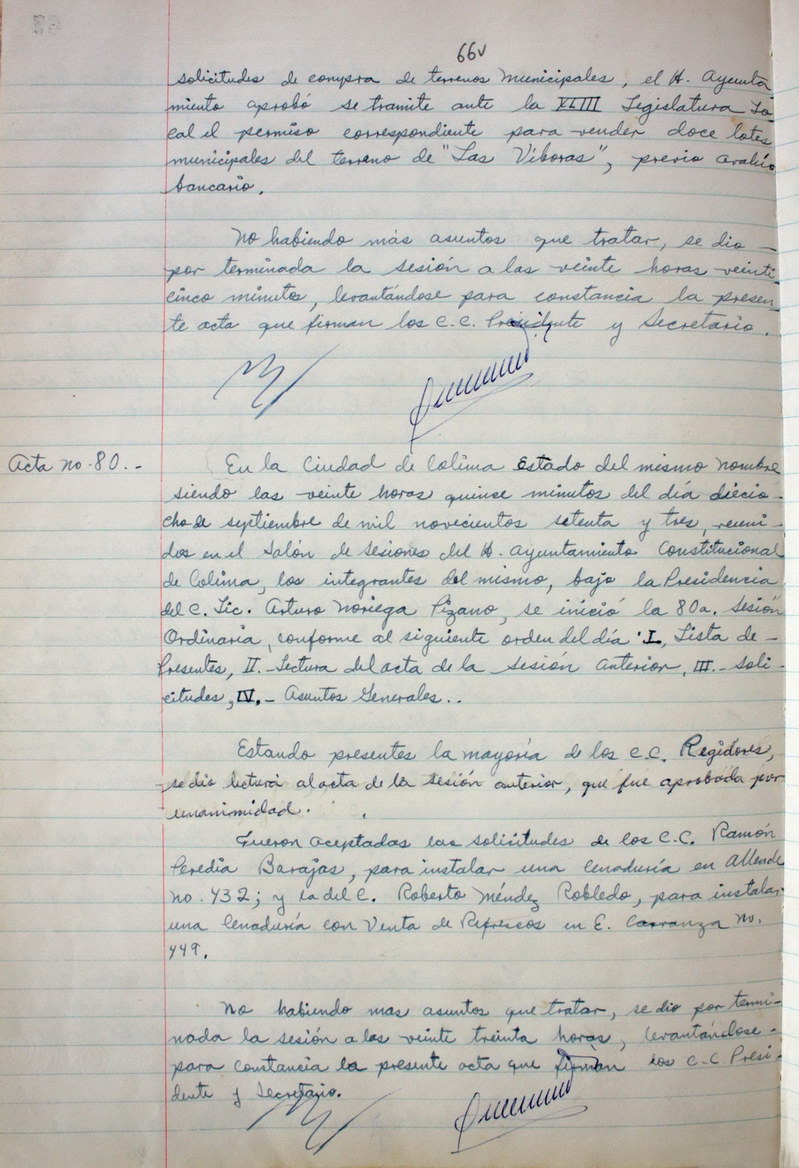 66v
solicitudes de compra de terrenos municipales, el H. Ayunta
miento aprobó se tramite ante la XLIII Legislatura Lo
cal el permiso correspondiente para vender doce lotes
municipales del terreno de "Las Víboras", previo avalúo
bancario.
No habiendo más asuntos que tratar, se dio -
por terminada la sesión a las veinte horas veinti
cinco minutos, levantándose para constancia la presen
te acta que firman los C.C. Presidente y Secretario.
Acta no. 80.-
En la Ciudad de Colima Estado del mismo nombre
siendo las veinte horas quince minutos del día diecio
cho de septiembre de mil novecientos setenta y tres, reuni-
dos en el Salón de Sesiones del H. Ayuntamiento Constitucional
de Colima, los integrantes del mismo, bajo la Presidencia
del C. Lic. Arturo Noriega Pizano, se inició la 80a. Sesión
Ordinaria, conforme al siguiente orden del día I. Lista de -
Presentes, II.- Lectura del acta de la sesión anterior, III.- Soli-
citudes, IV.- Asuntos Generales..
Estando presentes la mayoría de los C.C. Regidores,
se dio lectura al acta de la sesión anterior, que fue aprobada por
unanimidad.
Fueron aceptadas las solicitudes de los C.C. Ramón
Heredia Barajas, para instalar una Cenaduría en Allende
no. 432; y la del C. Roberto Méndez Robledo, para instalar
una Cenaduría con Venta de Refrescos en E. Carranza No.
449.
No habiendo mas asuntos que tratar, se dio por termi-
nada la sesión a las veinte treinta horas, levantándose -
para constancia la presente acta que firman los C.C. Presi-
dente y Secretario.